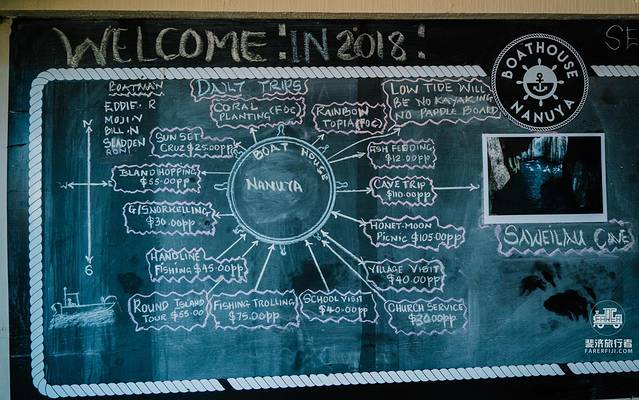 WELCOME: IN 2018:
SE
BOATMAN
EDDIE. R
MOJIN
BILL.N
SLADDEN
RONI
DAILY TRIPS
CORAL
PLANTING (FOC)
RAINBOW
TOPIA (FOC)
LOW TIDE WILL
BE NO KAYAKING
NO PADDLE BOARD
BOATHOUSE
NANUYA
SUN SET
CRUZ $25.00PP
ISLAND HOPPING
$55.00PP
G/SNORKELLING
$30.00PP
HANDLINE
FISHING $45.00PP
ROUND ISLAND
TOUR $55.00
FISHING TROLLING
$75.00PP
SCHOOL VISIT
$40.00PP
CHURCH SERVICE
$30.00PP
VILLAGE VISIT
$40.00PP
HONEY-MOON
PICNIC $105.00PP
CAVE TRIP
$110.00PP
FISH FEEDING
$12.00PP
BOAT HOUSE
NANUYA
N
W
S
SAWEILAU CAVE
斐济旅行者
FARERFIJI.COM